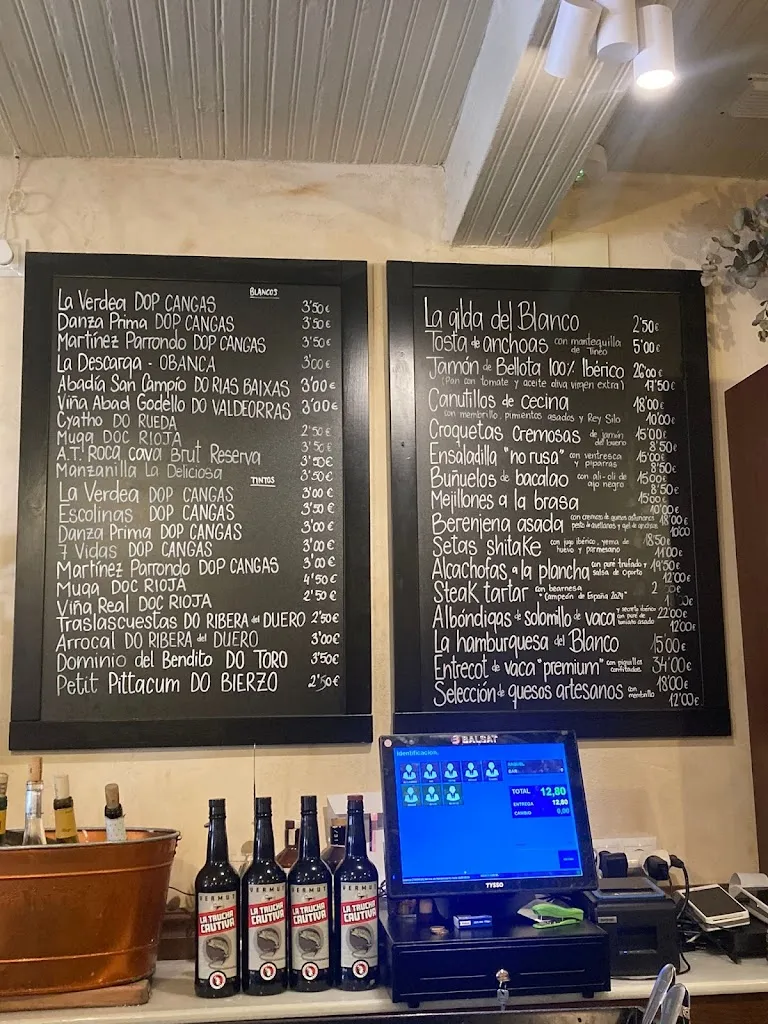 BLANCOS
La Verdea DOP CANGAS 3'50€
Danza Prima DOP CANGAS 3'50€
Martínez Parrondo DOP CANGAS 3'50€
La Descarga - OBANCA 3'00€
Abadía San Campio DO RIAS BAIXAS 3'00€
Viña Abad Godello DO VALDEORRAS 3'00€
Cyatho DO RUEDA 2'50€
Muga DOC RIOJA 3'50€
A.T. Roca, cava Brut Reserva 3'50€
Manzanilla La Deliciosa 3'50€
TINTOS
La Verdea DOP CANGAS 3'00€
Escolinas DOP CANGAS 3'50€
Danza Prima DOP CANGAS 3'00€
7 Vidas DOP CANGAS 3'00€
Martínez Parrondo DOP CANGAS 3'00€
Muga DOC RIOJA 4'50€
Viña Real DOC RIOJA 2'50€
Traslascuestas DO RIBERA del DUERO 2'50€
Arrocal DO RIBERA del DUERO 3'00€
Dominio del Bendito DO TORO 3'50€
Petit Pittacum DO BIERZO 2'50€
La gilda del Blanco 2'50€
Tosta de anchoas con mantequilla de Tineo 5'00€
Jamón de Bellota 100% Ibérico 26'00€
(Pan con tomate y aceite oliva virgen extra) 17'50€
Canutillos de cecina 18'00€
con membrillo, pimientos asados y Rey Silo 10'00€
Croquetas cremosas de jamón del bueno 15'00€
8'50€
Ensaladilla "no rusa" con ventresca y piparras 15'00€
8'50€
Buñuelos de bacalao con ali-oli de ajo negro 15'00€
8'50€
Mejillones a la brasa 15'00€
10'00€
Berenjena asada con cremoso de quesos asturianos 18'00€
pesto de avellanas y 10'00
Setas shitake con jugo ibérico, yema de huevo y parmesano 18'50€
11'00€
Alcachofas a la plancha con puré trufado y salsa de Oporto 19'50€
12'00€
Steak tartar con bearnesa
"Campeón de España 2024"
Albóndigas de solomillo de vaca y secreto ibérico con puré de boniato asado 22'00€
12'00€
La hamburguesa del Blanco 15'00€
Entrecot de vaca "premium" con piquillos confitados 34'00€
Selección de quesos artesanos con membrillo 18'00€
12'00€
BALSAT
Identificacion.
TOTAL 12,80
ENTREGA 12,80
CAMBIO 0,00
TYSSO
VERMUT
LA TRUCHA
CAUTIVA
VERMUT
LA TRUCHA
CAUTIVA
VERMUT
LA TRUCHA
CAUTIVA
VERMUT
LA TRUCHA
CAUTIVA